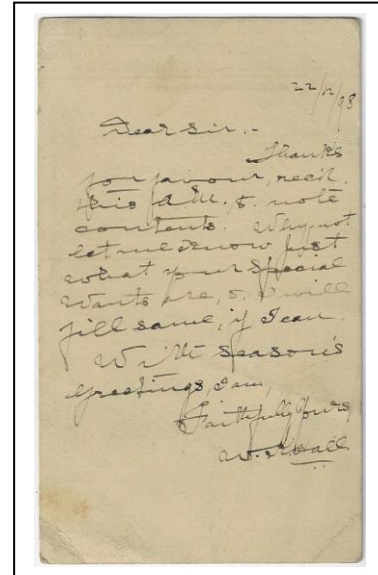 22/12/98
Dear Sir,-
Thanks
for favour, rec'd.
this A.M. & note
contents. Why not
let me know just
what your special
wants are, & I will
fill same, if I can.
With season's
greetings, I am,
Faithfully Yours,
W.